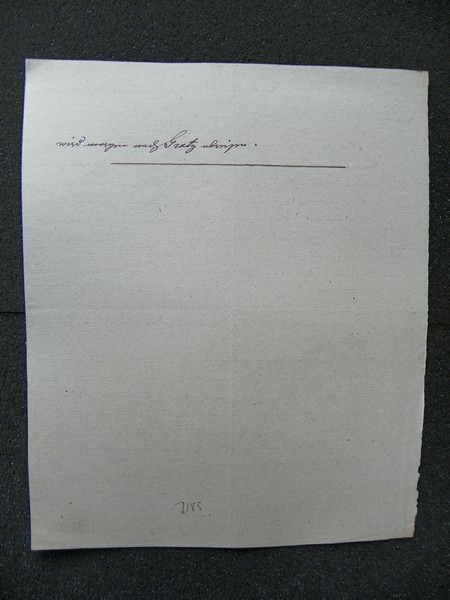 wird morgen nach Gratz abreisen.